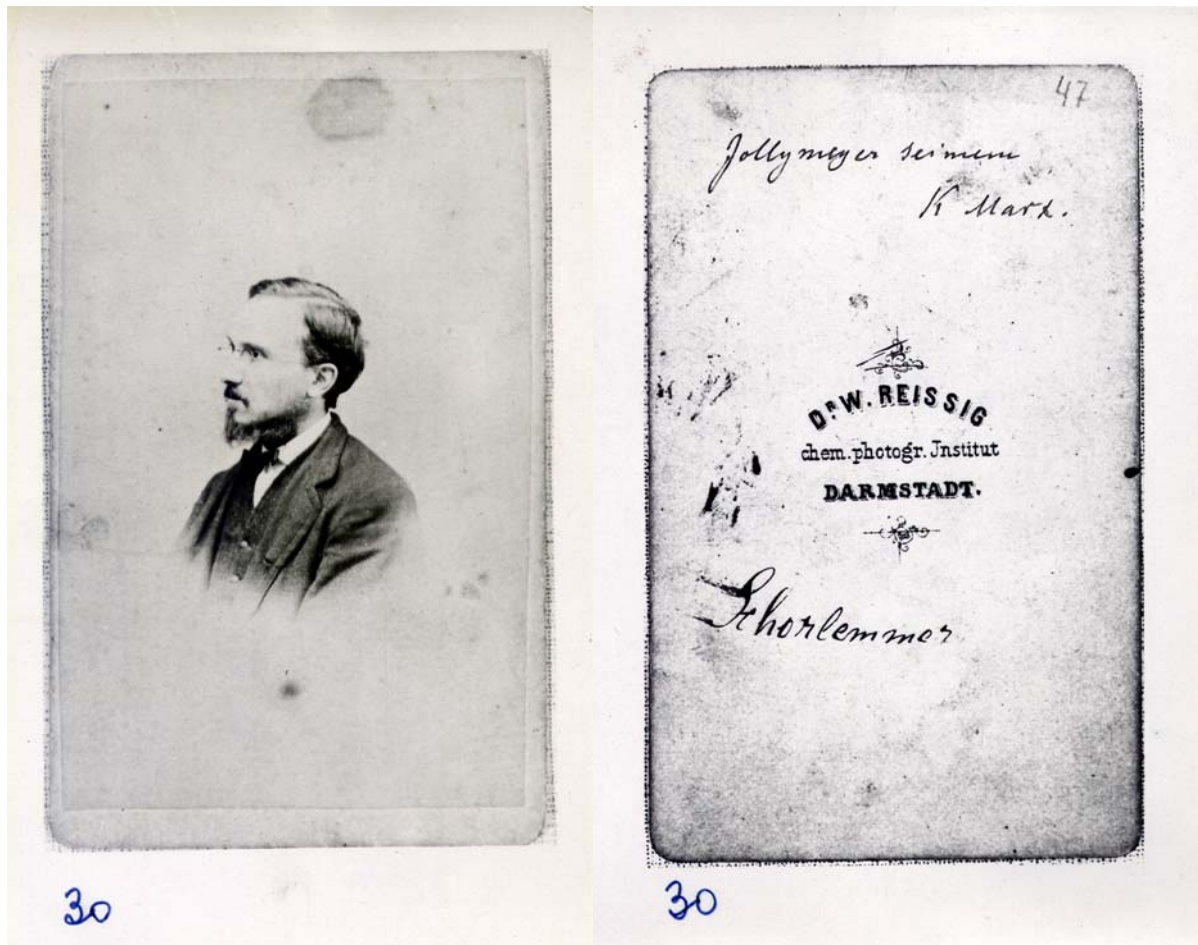 30
47
Jollymeyer seinem
K Marx.
Dr W. REISSIG
chem. photogr. Jnstitut
DARMSTADT.
Schorlemmer
30